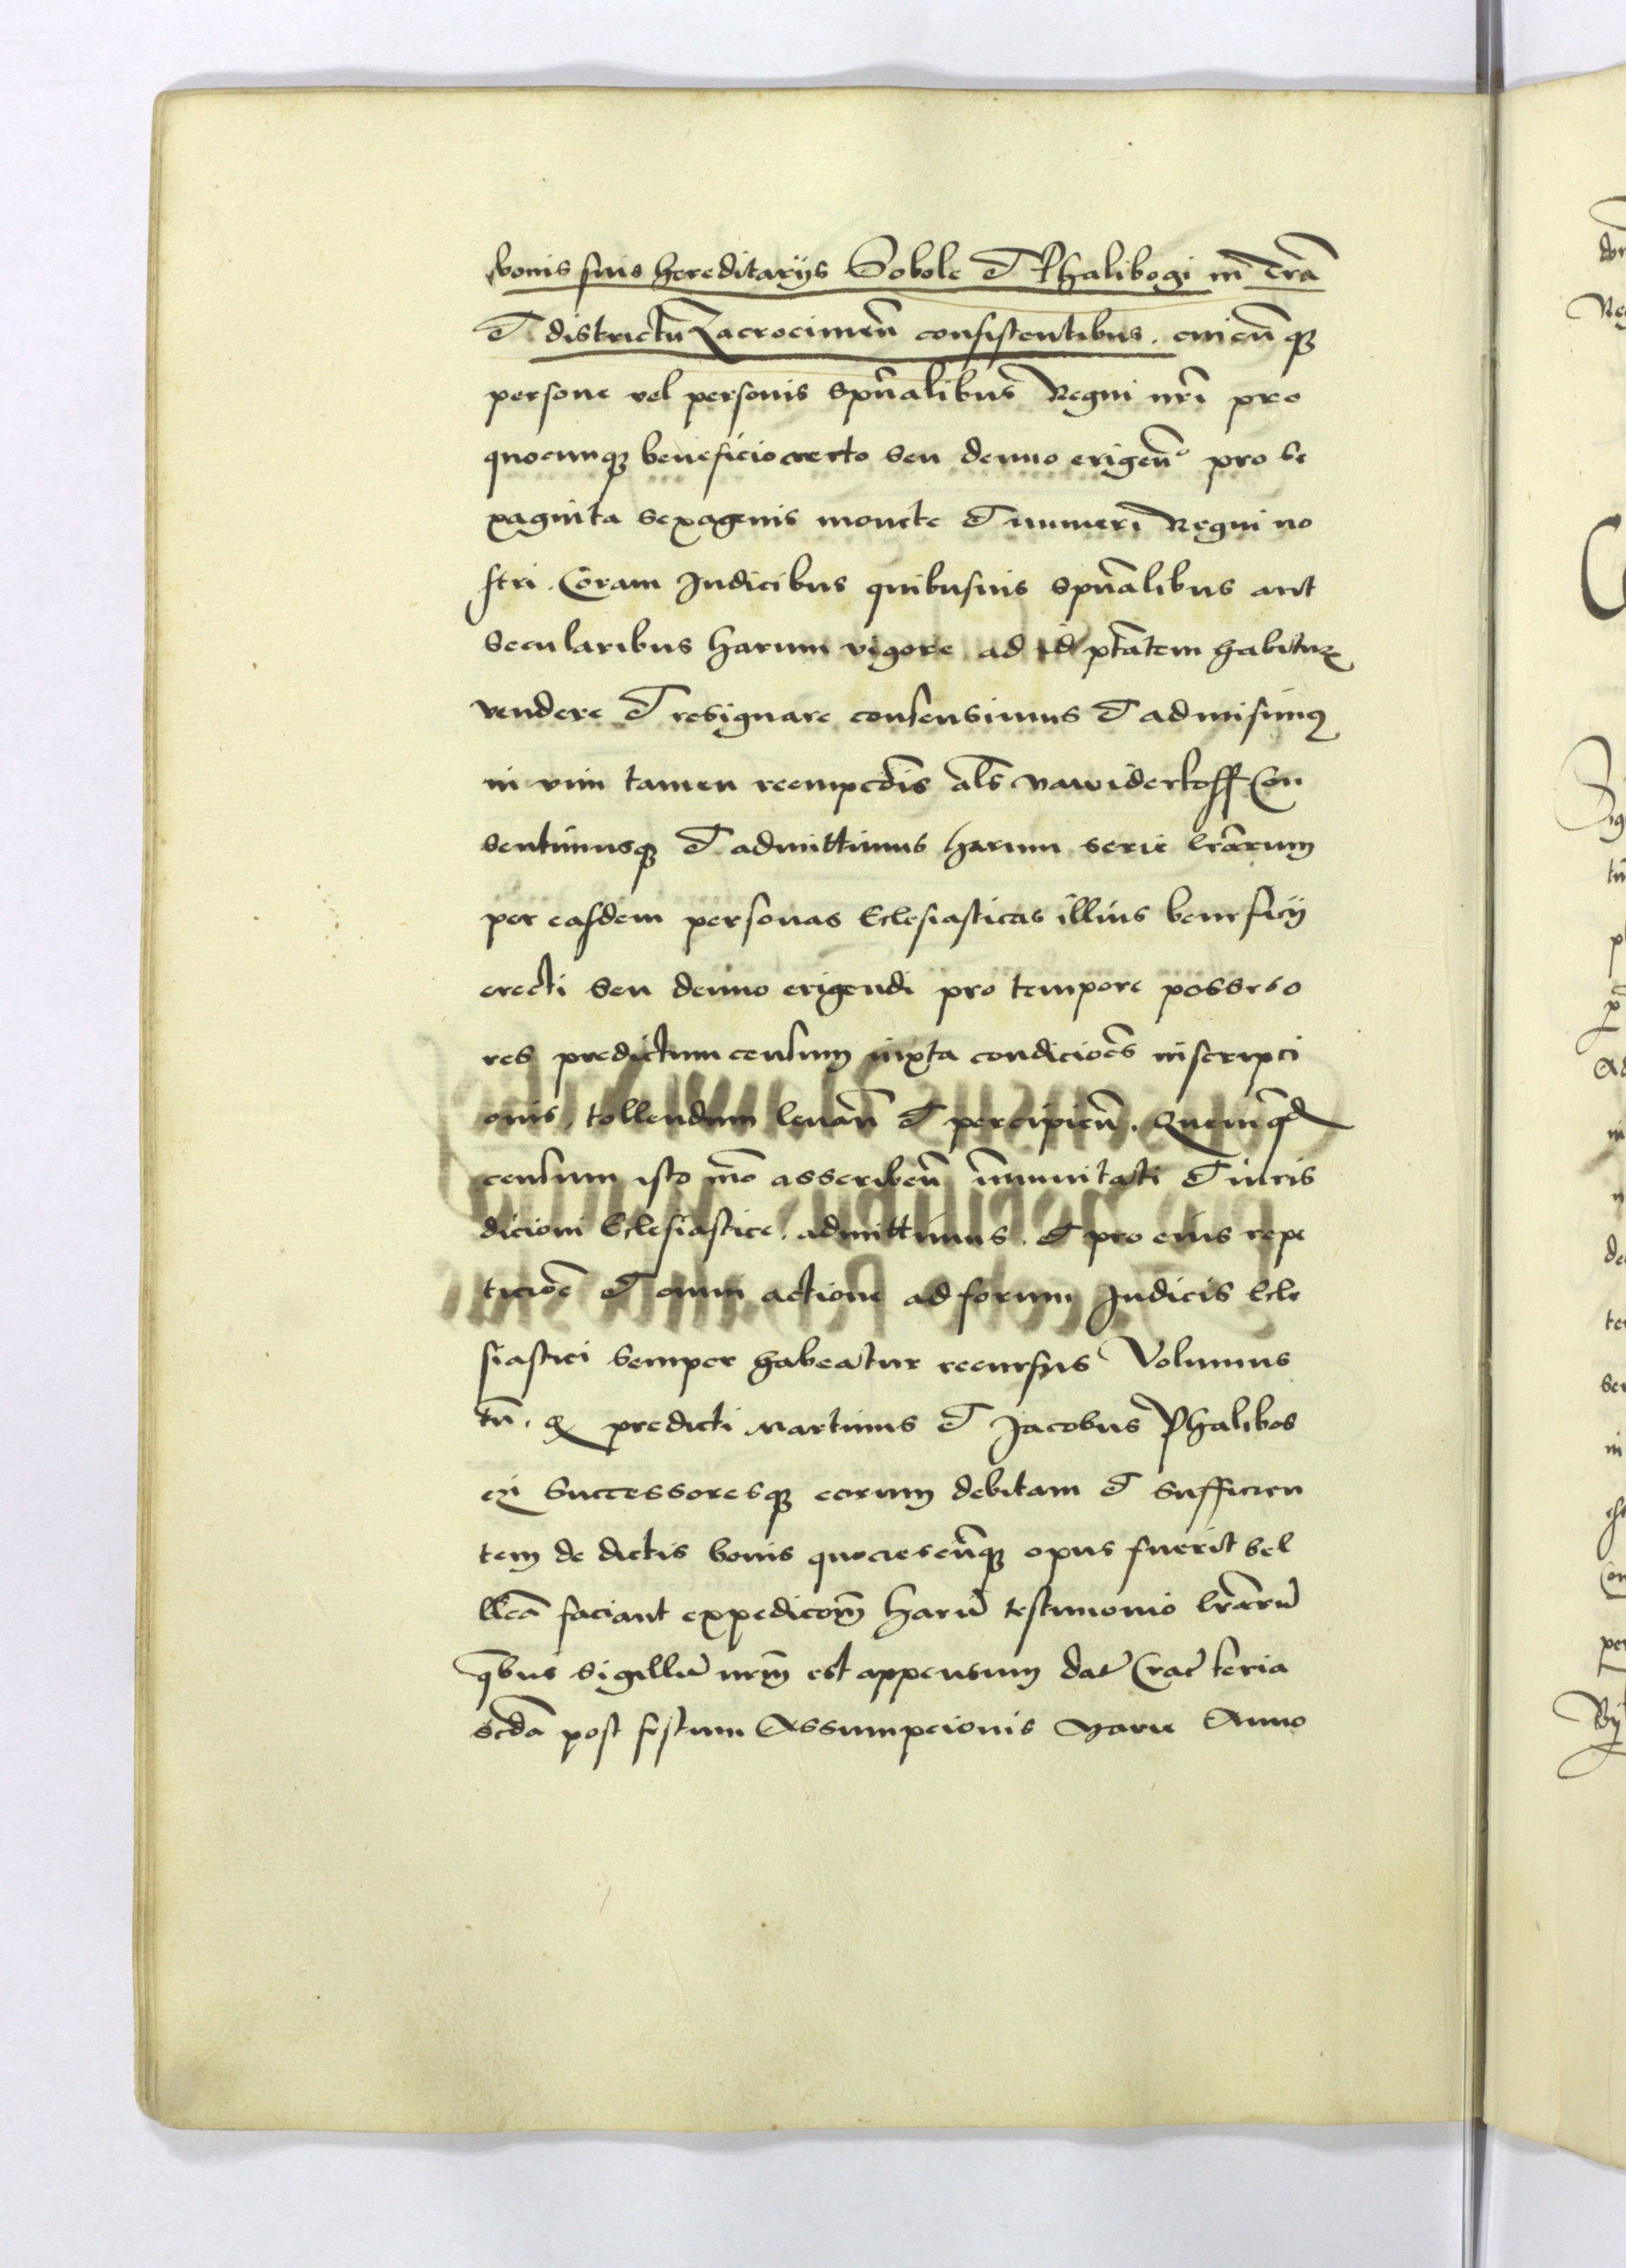 bonis suis hereditarijs Sobole et Phalibogi in t̃ra
et districtu Zacrocimeñ consistentibus . cuicũqꝫ
persone vel personis spũalibus Regni nr̃i pro
quocunqꝫ beneficio erecto seu denuo erigeñº pro se
xaginta sexagenis monete et numeri Regni no
stri . Coram Judicibus quibusuis spũalibus aut
secularibus harum vigore ad id ptãtem habituꝝ
vendere et resignare consensimus et admisimꝰ
in vim tamen reempcõis al̃s nawiderkoff Con
sentimusqꝫ et admittimus harum serie lr̃arum
per easdem personas Eclesiasticas illius beneficij
erecti seu denuo erigendi pro tempore possesso
res predictum censum iuxta condiciões inscripci
onis, tollendum leuañ et percipieñ . Quemq̃d
censum isto mõ asscribeñ im̃unitati et iuris
dicioni Eclesiastice . admittimus . et pro eius repe
ticiõe et omni actione ad forum Judicis Ecle
siastici semper habeatur recursus Volumus
tñ . qꝫ predicti Martinus et Jacobus Phalibos
cỹ Successoresqꝫ eorum debitam et sufficien
tem de dictis bonis quociescũqꝫ opus fuerit bel
llicã faciant expedicõm̃ harũ testimonio lr̃arũ
q̃bus sigillũ nr̃m est appensum dat̃ Crac̃ feria
scd̃a post festum Assumpcionis Marie Anno